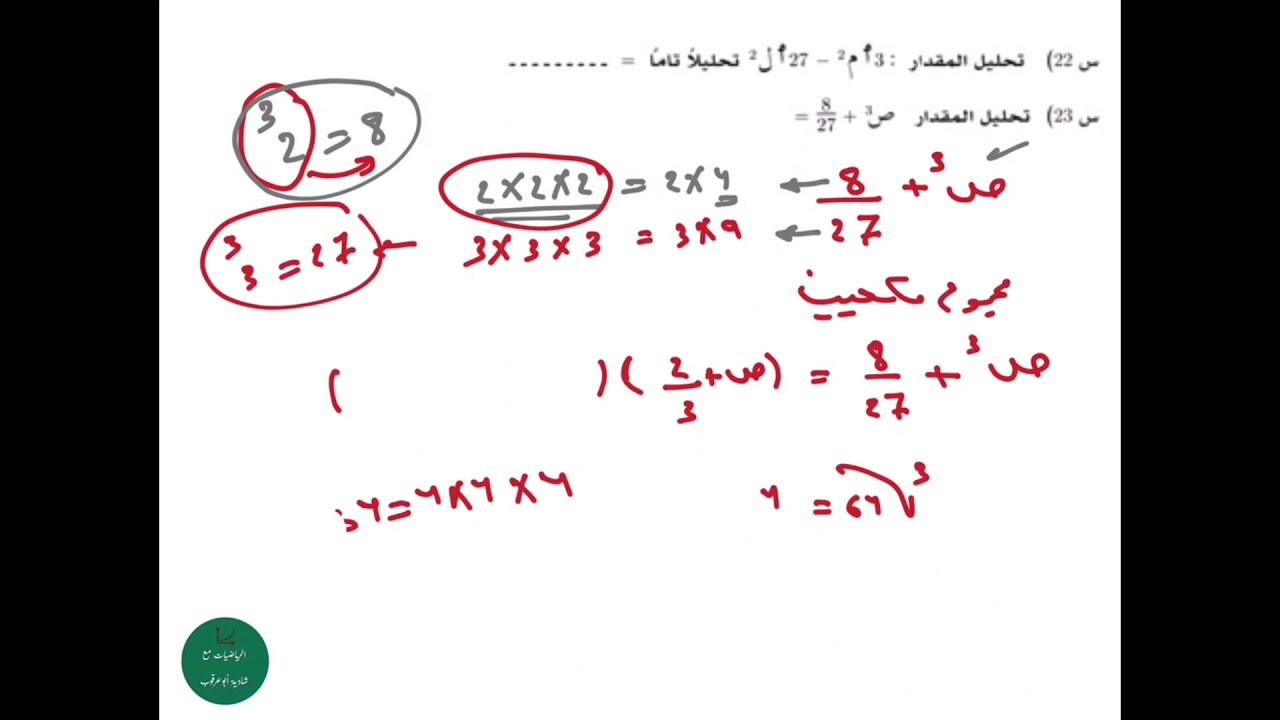 س 22) تحليل المقدار : 3أم² − 27أل² تحليلاً تامًا = ---------
س 23) تحليل المقدار ص³ + 8/27 =
3
2 = 8
ص³ + 8/27
2×2×2 = 2×4 ← 8
3
3 = 27 ← 3×3×3 = 3×9 ← 27
مجموع مكعبين
ص³ + 8/27 = (ص + 2/3) ( )
³√64 = 4
4×4×4 =
الرياضيات مع
شادية أبو عرقوب